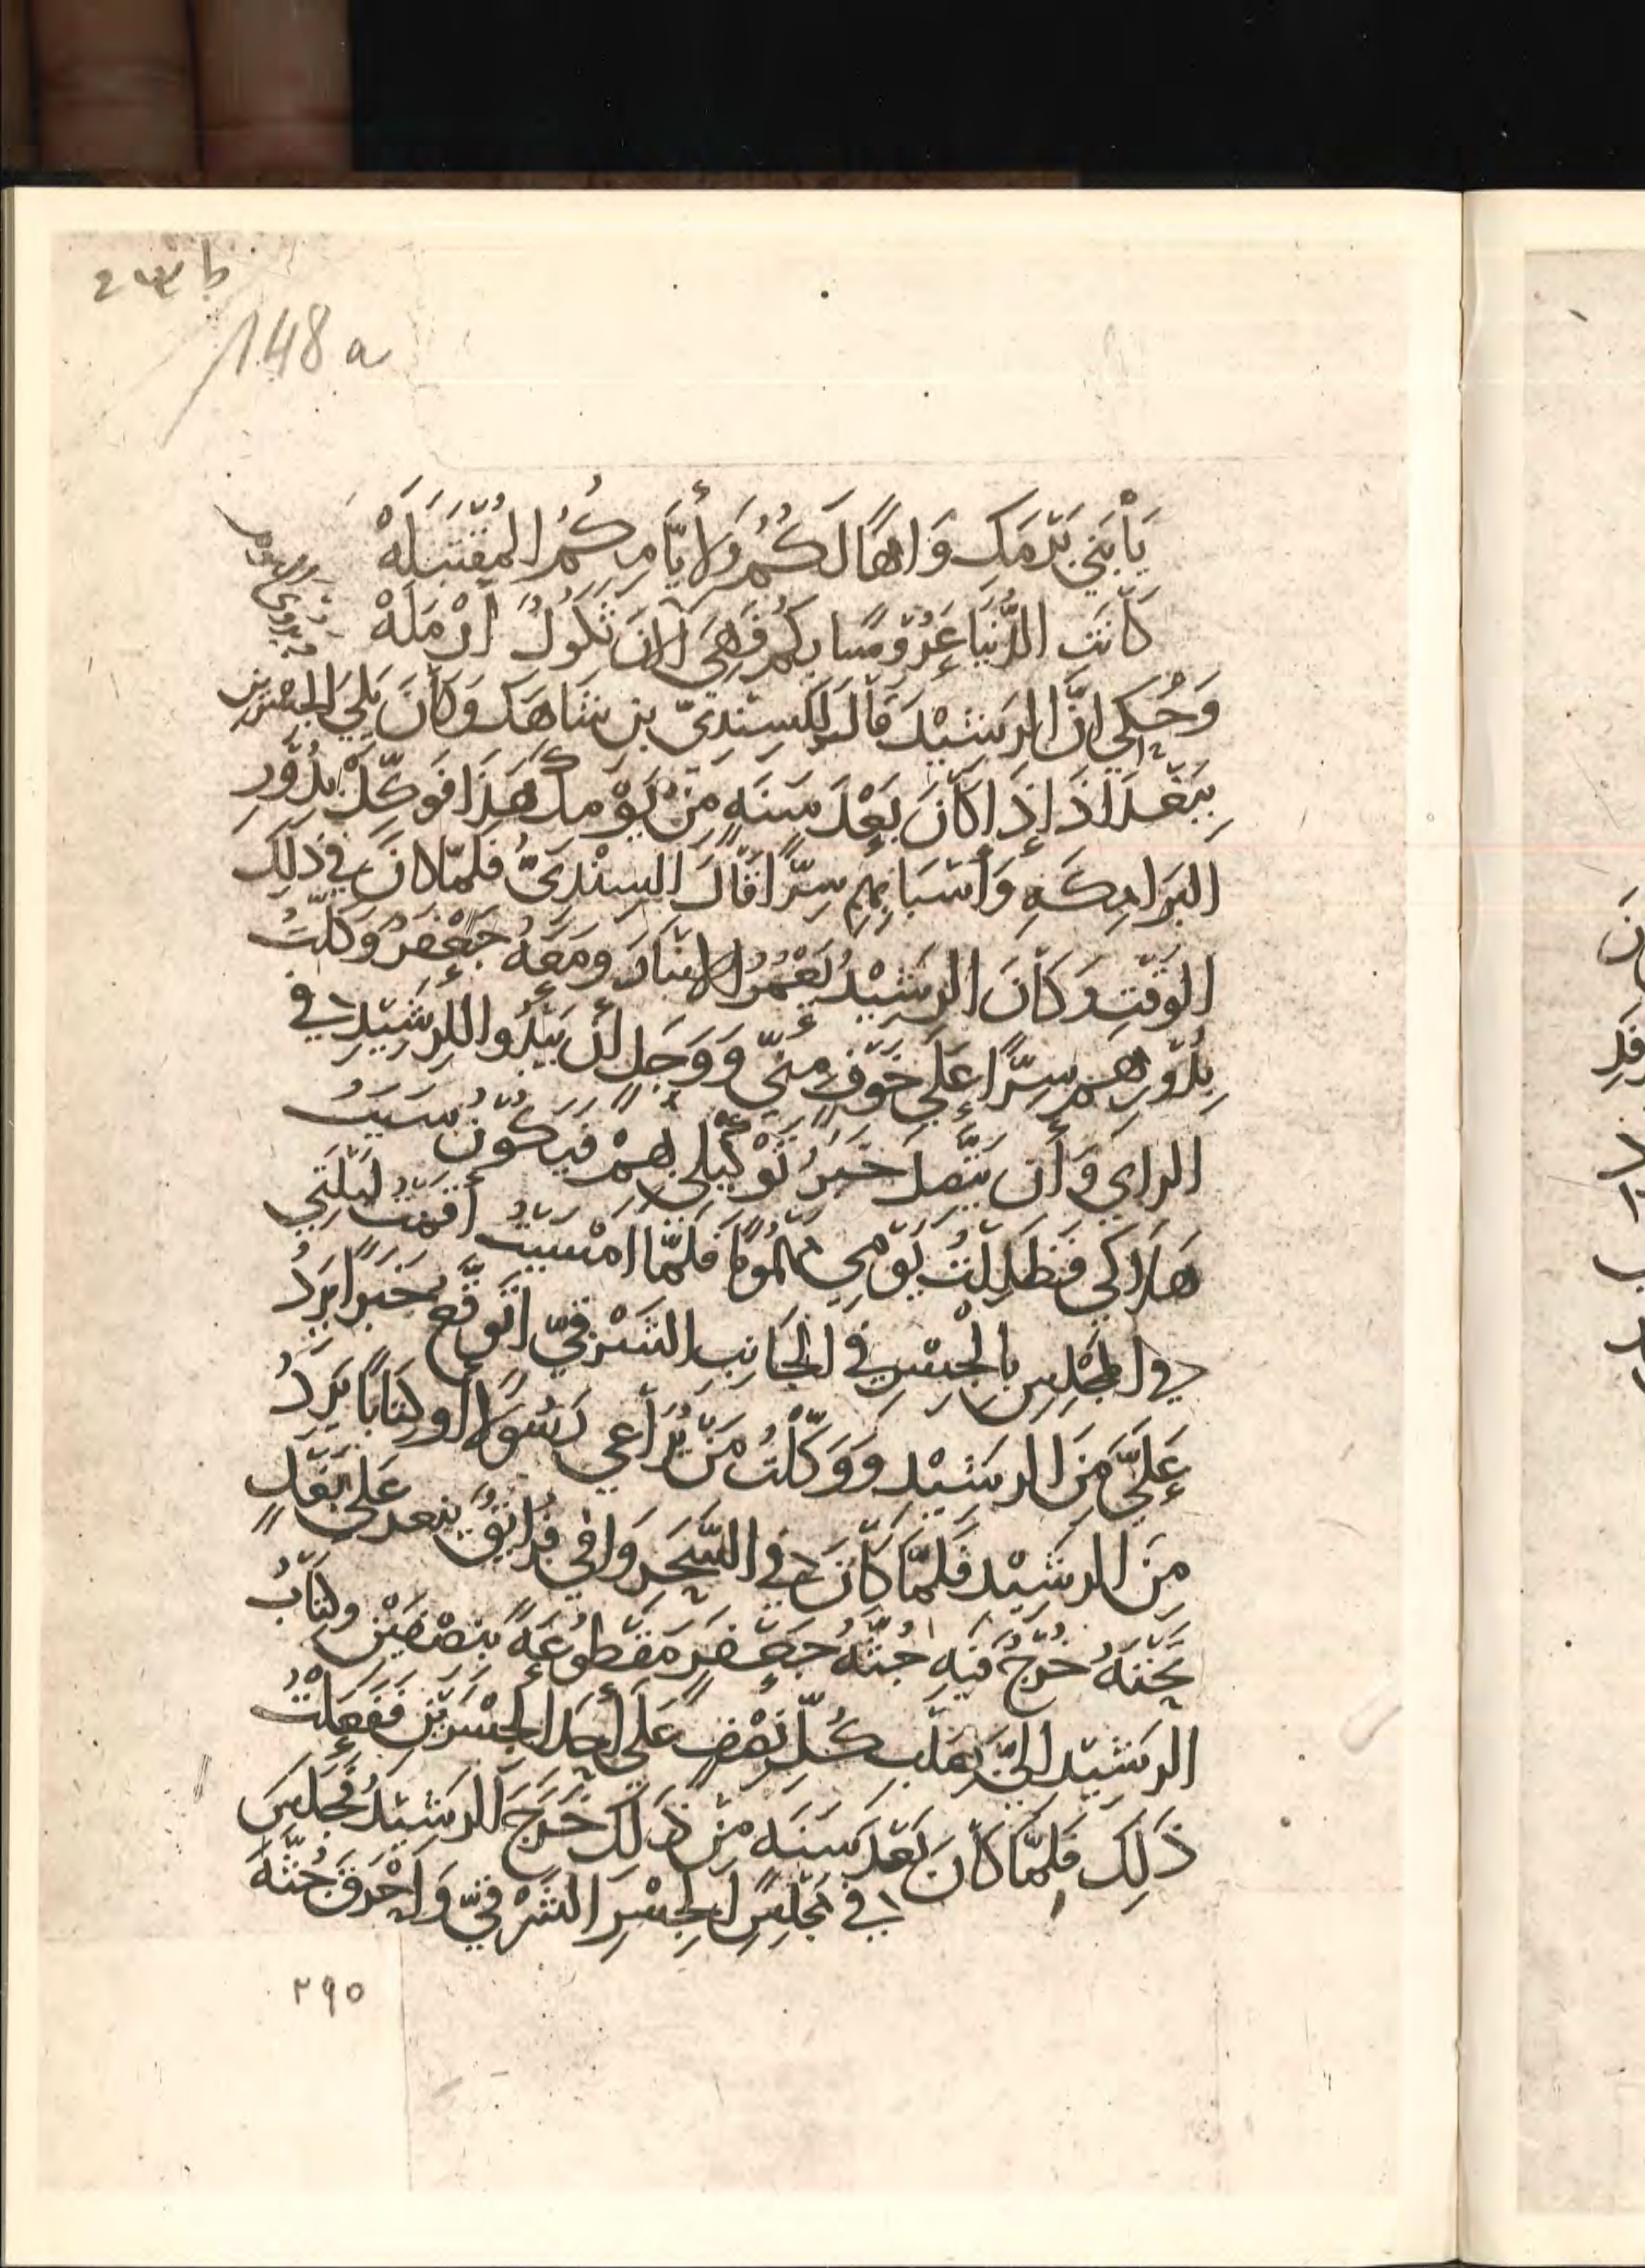 148 a
يَا بَنِي بَرْمَكٍ وَاهًا لَكُمْ وَلِأَيَّامِكُمُ المُقْتَبَلَهْ
كَانَتِ الدُّنْيَا عَرُوسًا بِكُمُ فَهِيَ الآنَ ثَكُولٌ أَرْمَلَهْ
ويروى
وَحُكِي انَّ الرَشِيْدَ قَالَ لِلسِنْدِيّ بنِ شَاهَك وَكَانَ يَلي الجِسْرَينِ
بِبَغْدَاذَ إِذَا كَانَ بَعْدَ سَنَةٍ مِنْ يَوْمِكَ هَذَا فَوَكِّلْ بِدُوْرِ
البَرَامِكَةِ وَأَسْبَابِهِم سِرًّا قَالَ السِنْدِيُّ فَلَمَّا كَانَ فِي ذَلِكَ
الوَقْتِ وَكَانَ الرشِيْدُ بِعُمْرِ الانبَارِ وَمَعَهُ جَعْفَرُ وَكَّلْتُ
بِدُوْرِهِم سِرًّا عَلَى خَوْفٍ مِنِّي وَوَجَلٍ أَنْ يَبْدُوا للرشِيْدِ في
الراي وَأن يَتَّصِلَ خَبَرُ تَوْكِيْلِي بِهِمْ فَيَكُوْنَ سَبَبُ
هَلَاكي فَظَلِلْتُ يَوْمِي مَهْمُومًا فَلَمَّا امْسَيْتُ أقَمْتُ لَيْلَتِي
في المَجْلِسِ بِالْجِسْرِ في الجَانِبِ الشَرْقيّ اتَوَقَّعُ خَبَرًا يَرِدُ
عَلَيَّ مِنَ الرشِيْدِ وَوَكَّلْتُ مَنْ يُرَاعِي رَسُولًا أَو كِتَابًا يَرِدُ
مِنَ الرشِيْد فَلَمَّا كَانَ في السَّحَرِ وَافى فُرَانِقٌ عَلَى بَغْلٍ
تَحْتَهُ خُرْجٌ فَيْهِ جُثَّةُ جَعْفَرٍ مَقْطُوعَةً بنصْفَيْنِ وكِتَابُ
الرشِيْد اليَّ بصَلْبِ كُلِّ نِصْفٍ عَلَى أَحَدِ الجِسْرَيْنِ فَفَعَلْتُ
ذَلِكَ فَلَمَّا كَانَ بَعْدَ سَنَةٍ مِنْ ذَلِكَ خَرَجَ الرشِيْدُ فَجَلَسَ
في مَجْلِسِ الجِسْرِ الشَرْقيّ وَاحْرَقَ جُثَّةَ
٢٩٥